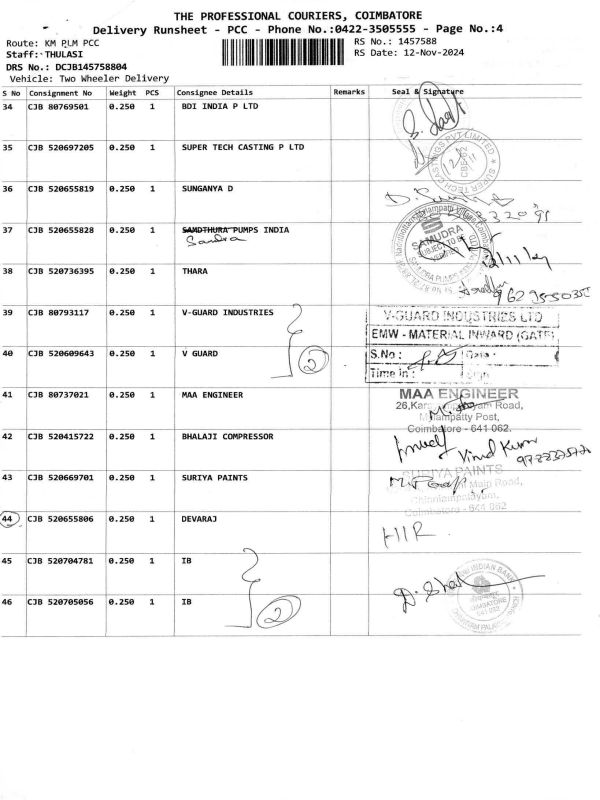 THE PROFESSIONAL COURIERS, COIMBATORE
Delivery Runsheet - PCC - Phone No.:0422-3505555 - Page No.:4
Route: KM PLM PCC
RS No.: 1457588
Staff: THULASI
RS Date: 12-Nov-2024
DRS No.: DCJB145758804
Vehicle: Two Wheeler Delivery
S No Consignment No Weight PCS Consignee Details Remarks Seal & Signature
34 CJB 80769501 0.250 1 BDI INDIA P LTD
35 CJB 520697205 0.250 1 SUPER TECH CASTING P LTD
36 CJB 520655819 0.250 1 SUNGANYA D
37 CJB 520655828 0.250 1 SAMDTHURA PUMPS INDIA
Sandra
SAMUDRA
38 CJB 520736395 0.250 1 THARA
39 CJB 80793117 0.250 1 V-GUARD INDUSTRIES
V-GUARD INDUSTRIES LTD
EMW - MATERIAL INWARD (GATE)
2
40 CJB 520609643 0.250 1 V GUARD
S.No :
Time in :
41 CJB 80737021 0.250 1 MAA ENGINEER
MAA ENGINEER
Road,
Post,
Coimbatore - 641 062.
42 CJB 520415722 0.250 1 BHALAJI COMPRESSOR
43 CJB 520669701 0.250 1 SURIYA PAINTS
SURIYA PAINTS
Main Road,
Chinniampalayam,
Coimbatore - 641 062
44 CJB 520655806 0.250 1 DEVARAJ
45 CJB 520704781 0.250 1 IB
INDIAN BANK
COIMBATORE
641 062
2
46 CJB 520705056 0.250 1 IB